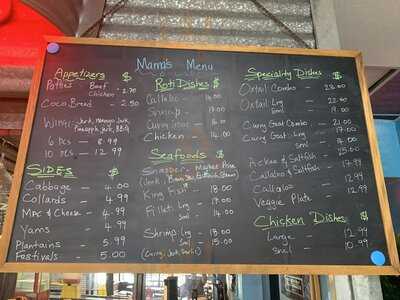 Mama's Menu
Appetizers $
Patties Beef
Chicken - 2.70
Coco Bread - 2.50
Wings: Jerk, Mango Jerk,
Pineapple Jerk, BBQ
6 pcs - 8.99
10 pcs - 12.99
SIDES
Cabbage - 4.00
Collards 4.99
Mac & Cheese - 4.99
Yams - 4.99
Plantains - 5.99
Festivals - 5.00
Roti Dishes $
Callaloo
Shrimp 17.00
Curry Goat 16.00
Chicken - 14.00
Seafoods
Snapper - Market Price
King Fish 18.00
Fillet: Lrg - 17.00
Sml - 14.00
Shrimp: Lrg - 18.00
Sml - 15.00
(Curry, Jerk, Garlic)
Speciality Dishes $
Oxtail Combo - 23.00
Oxtail Lrg
Sml
Curry Goat Combo - 21.00
Curry Goat: Lrg - 17.00
Sml
Ackee & Saltfish
Callaloo & Saltfish - 17.99
Callaloo - 12.99
Veggie Plate - 12.99
Chicken Dishes $
Large - 12.99
Small - 10.99